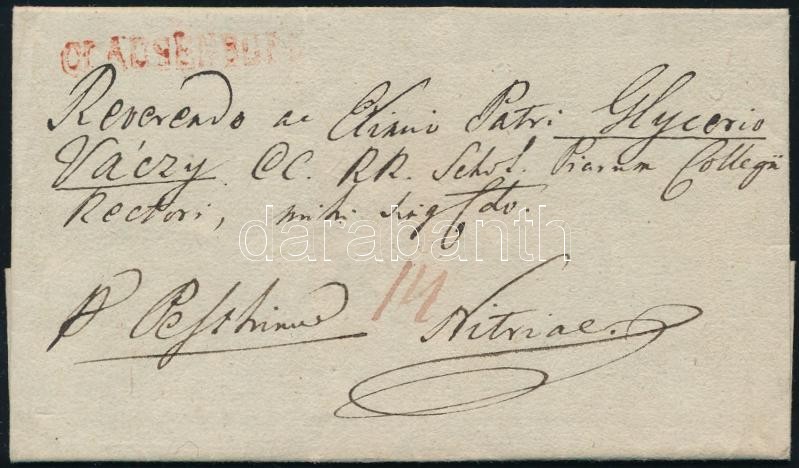 CLAUSENBURG
Reverendo ac Patri Glycerio
Váczy CC. RR. Schol. Piarum Collegii
Rectori, mihi
darabanth
14
p Pesthinum Nitriae.